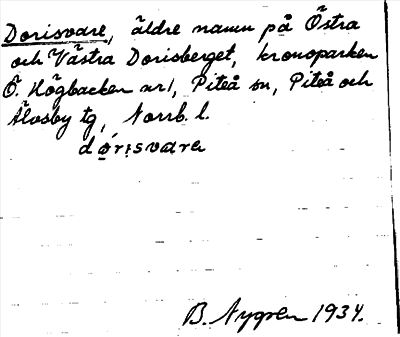 Dorisvare, äldre namn på Östra
och Västra Dorisberget, kronoparken
Ö. Högbacken nr 1, Piteå sn, Piteå och
Älvsby tg, Norrb. l.
dórisvara
B. Nygren 1934.